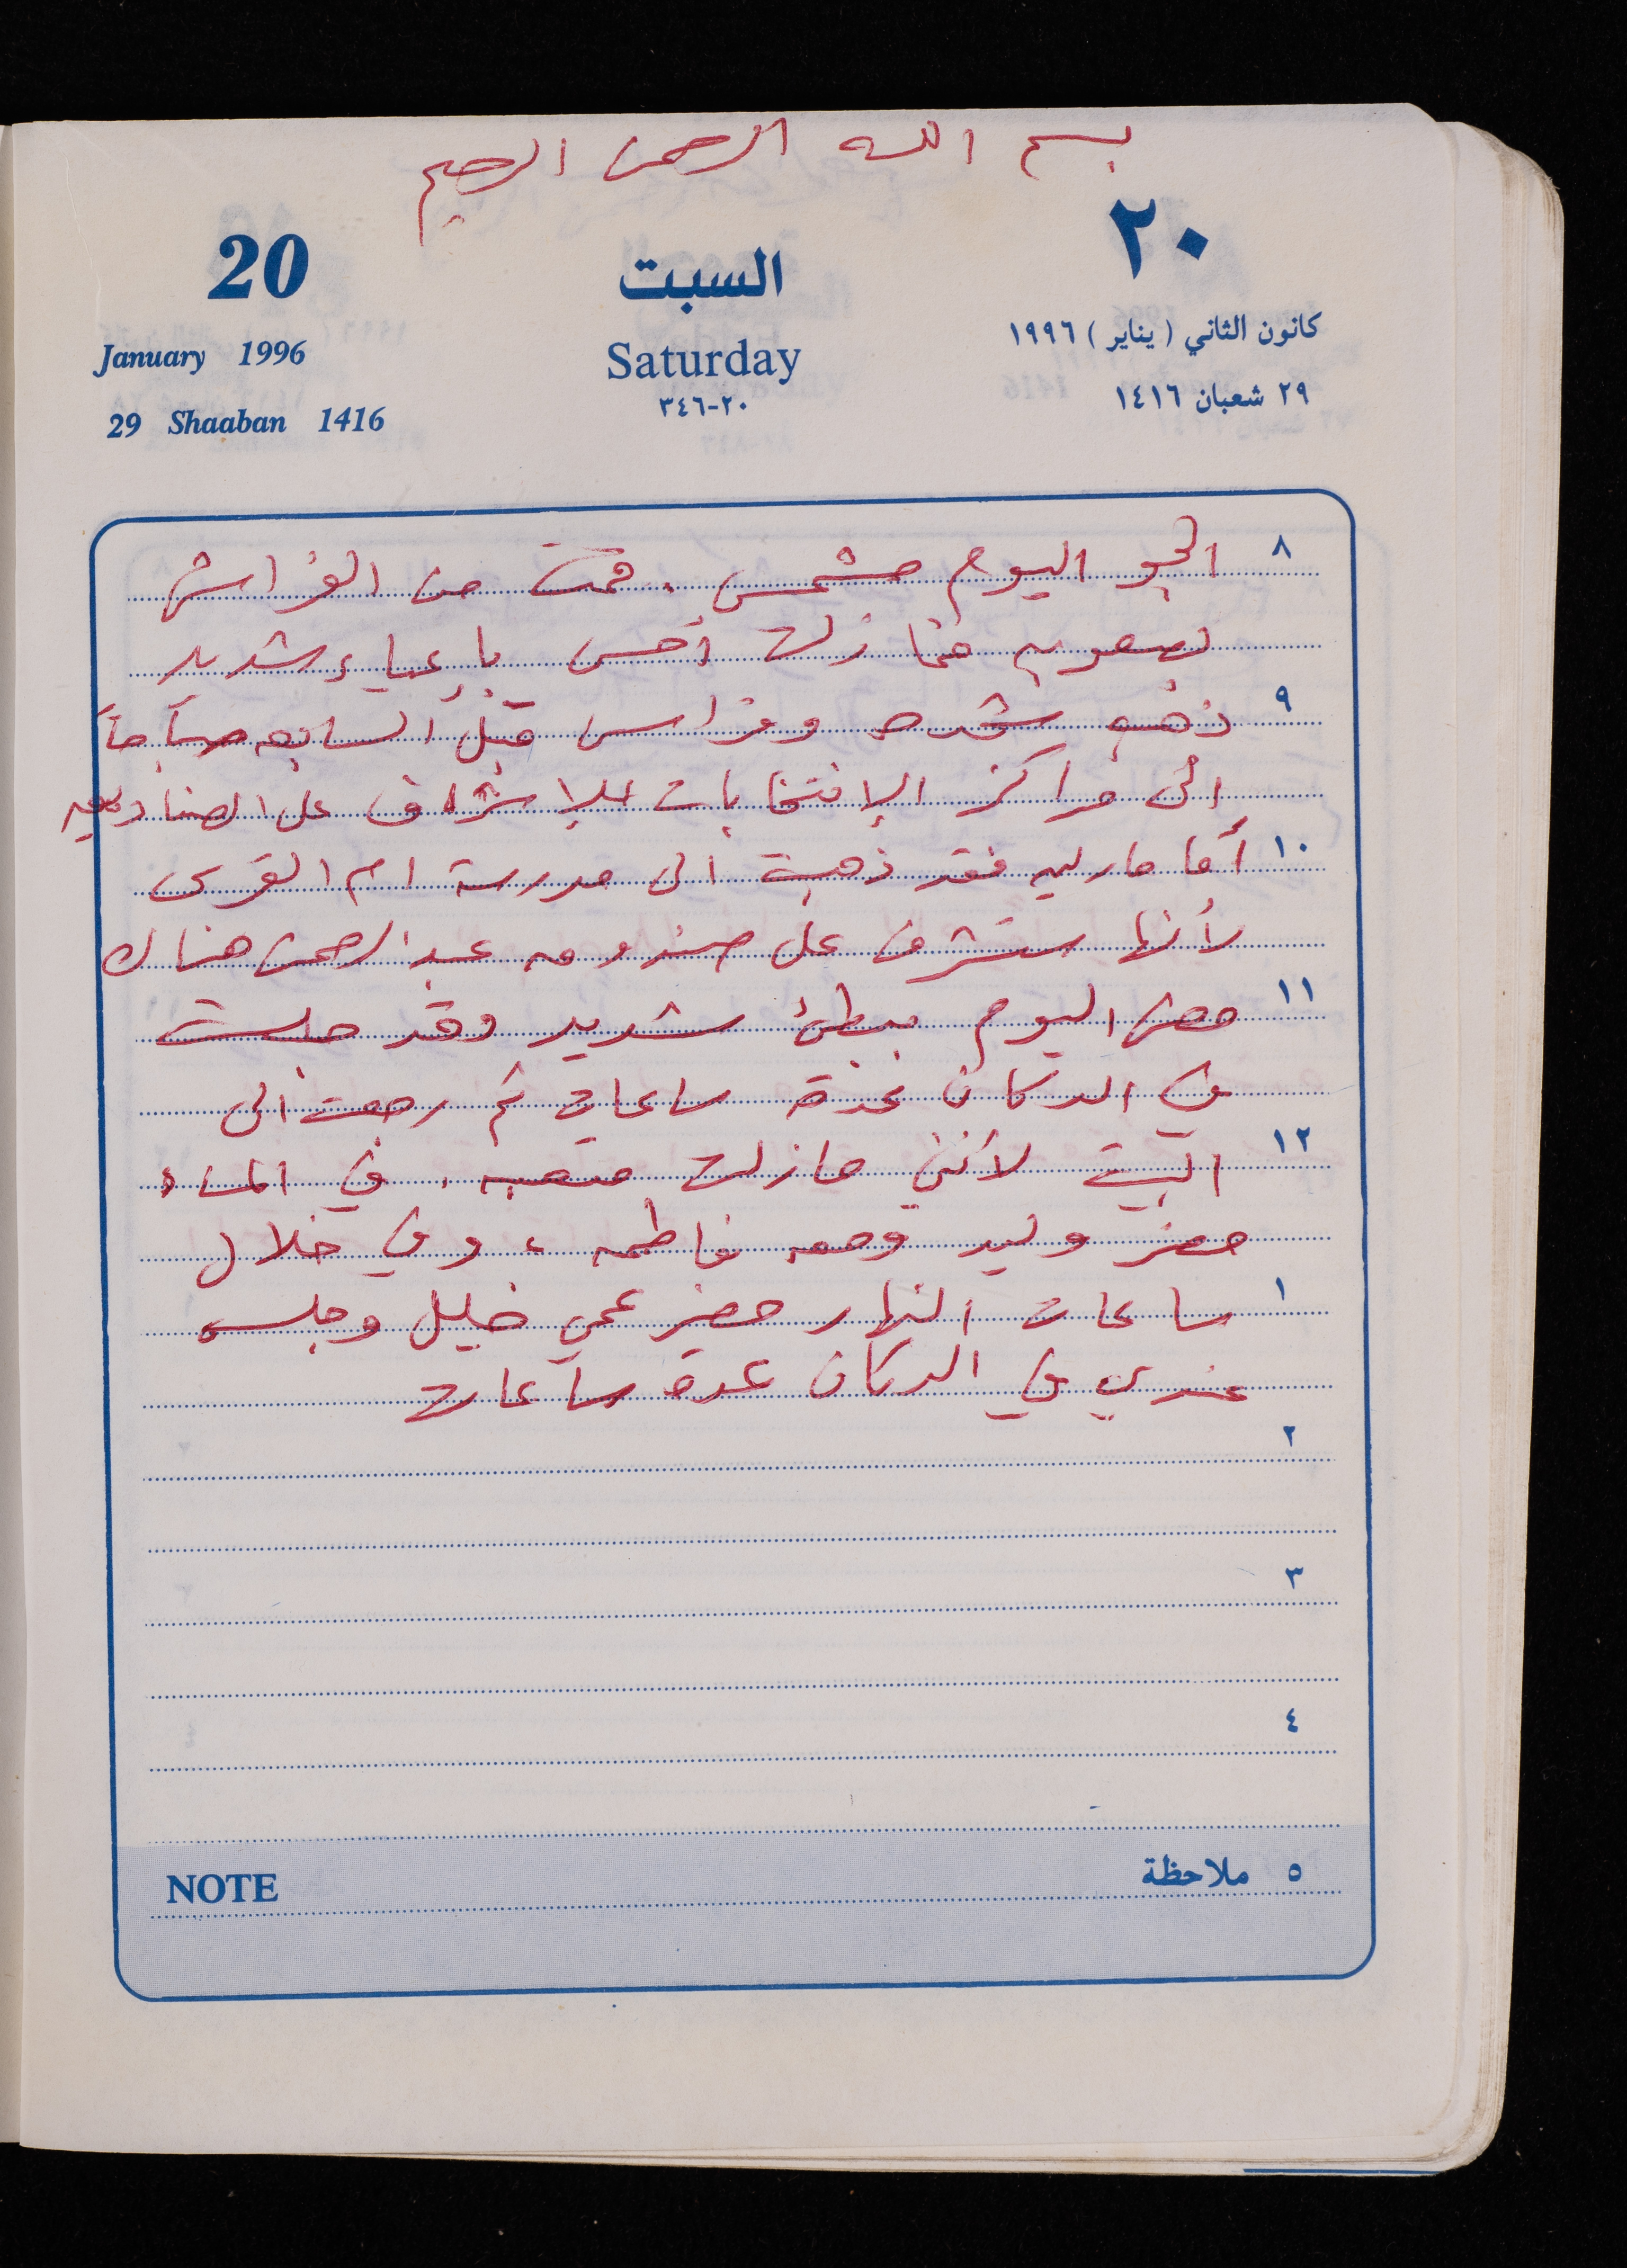 بسم الله الرحمن الرحيم
20
السبت
٢٠
January 1996
Saturday
كانون الثاني (يناير) ١٩٩٦
29 Shaaban 1416
٢٠-٣٤٦
٢٩ شعبان ١٤١٦
٨ الجو اليوم مشمس. قمت من الفراش
بصعوبه فما زلت أحس بإعياء شديد
٩ ذهب وفراس قبل السابعه صباحاً
الى مراكز الإنتخابات للإشراف على الصناديق
١٠ أما ماريه فقد ذهبة الى مدرسة ام القرى
لأنها ستشرف على صندوق عبد الرحمن هناك
١١ مضى اليوم ببطئ شديد وقد جلست
في الدكان عدة ساعات ثم رجعت الى
١٢ البيت لأنني مازلت متعبه. في المساء
حضر وليد ومعه فاطمه، وفي خلال
١ ساعات النهار حضر عمي خليل وجلس
عندي في الدكان عدة ساعات
٢
٣
٤
٥ ملاحظة
NOTE